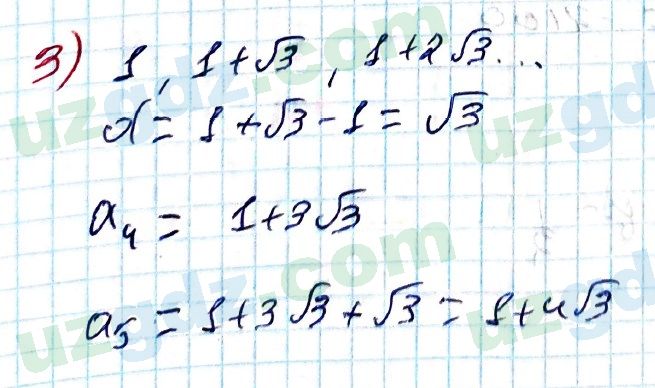 3) 1, 1+√3, 1+2√3...
d = 1+√3-1 = √3
a₄ = 1+3√3
a₅ = 1+3√3+√3 = 1+4√3
uzgdz.com
uzgdz.com